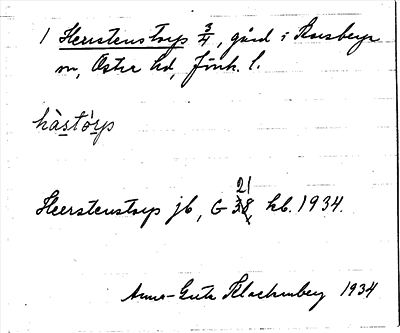 1 Herrstenstorp 3/4, gård i Korsberga
sn, Östra hd, Jönk. l.
hàstórp
Herrstenstorp jb, G 21 38 kb. 1934.
Anna-Greta Klackenberg 1934